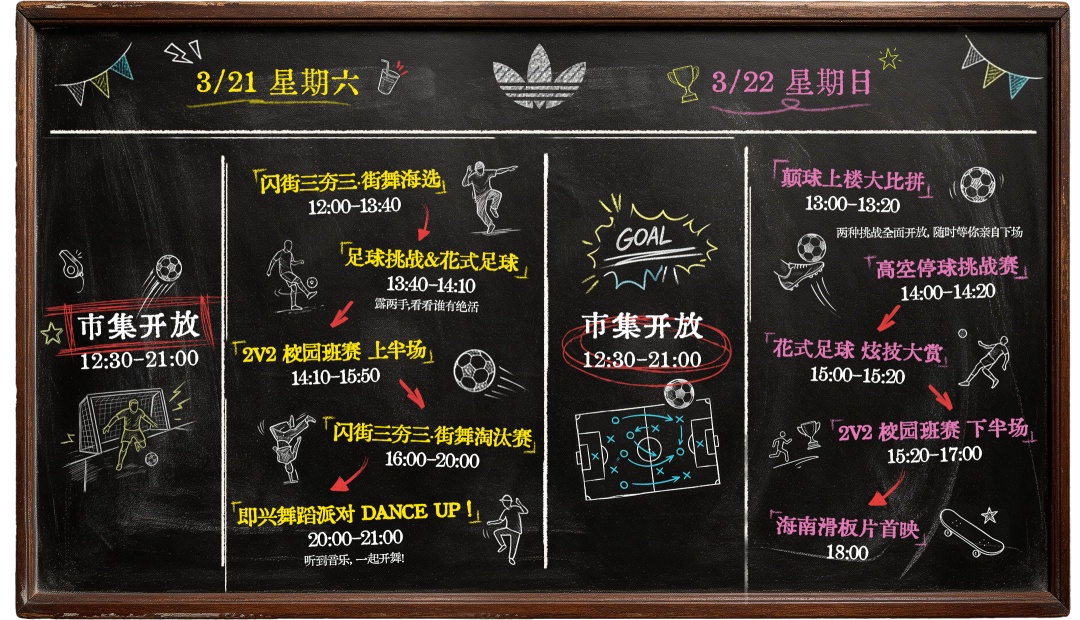 3/21 星期六
3/22 星期日
市集开放
12:30-21:00
「闪街三夯三·街舞海选」
12:00-13:40
「足球挑战&花式足球」
13:40-14:10
露两手,看看谁有绝活
「2V2 校园班赛 上半场」
14:10-15:50
「闪街三夯三·街舞淘汰赛」
16:00-20:00
「即兴舞蹈派对 DANCE UP！」
20:00-21:00
听到音乐, 一起开舞!
GOAL
市集开放
12:30-21:00
「颠球上楼大比拼」
13:00-13:20
两种挑战全面开放, 随时等你亲自下场
「高空停球挑战赛」
14:00-14:20
「花式足球 炫技大赏」
15:00-15:20
「2V2 校园班赛 下半场」
15:20-17:00
「海南滑板片首映」
18:00